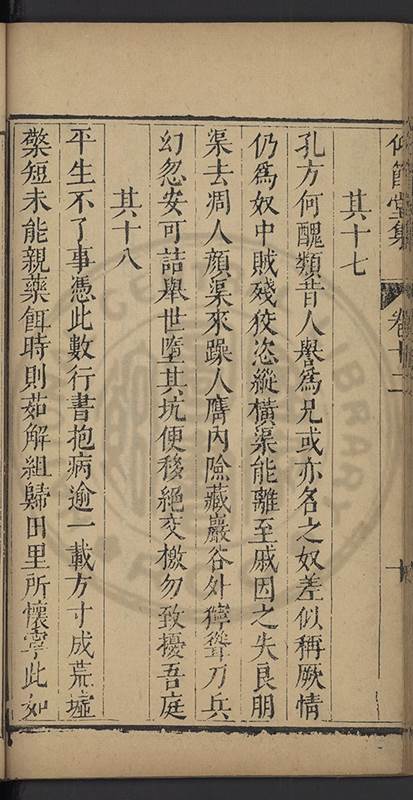 仰節堂集 卷十二
其十七
孔方何醜類昔人譽爲兄或亦名之奴差似稱厥情
仍爲奴中賊殘狡恣縱橫渠能離至戚因之失良朋
渠去凋人顔渠來躁人膺內險藏巖谷外獰聳刀兵
幻忽安可詰舉世墮其坑便移絕交檄勿致擾吾庭
其十八
平生不了事憑此數行書抱病逾一載方寸成荒墟
檠短未能親藥餌時則茹解組歸田里所懷寧此如